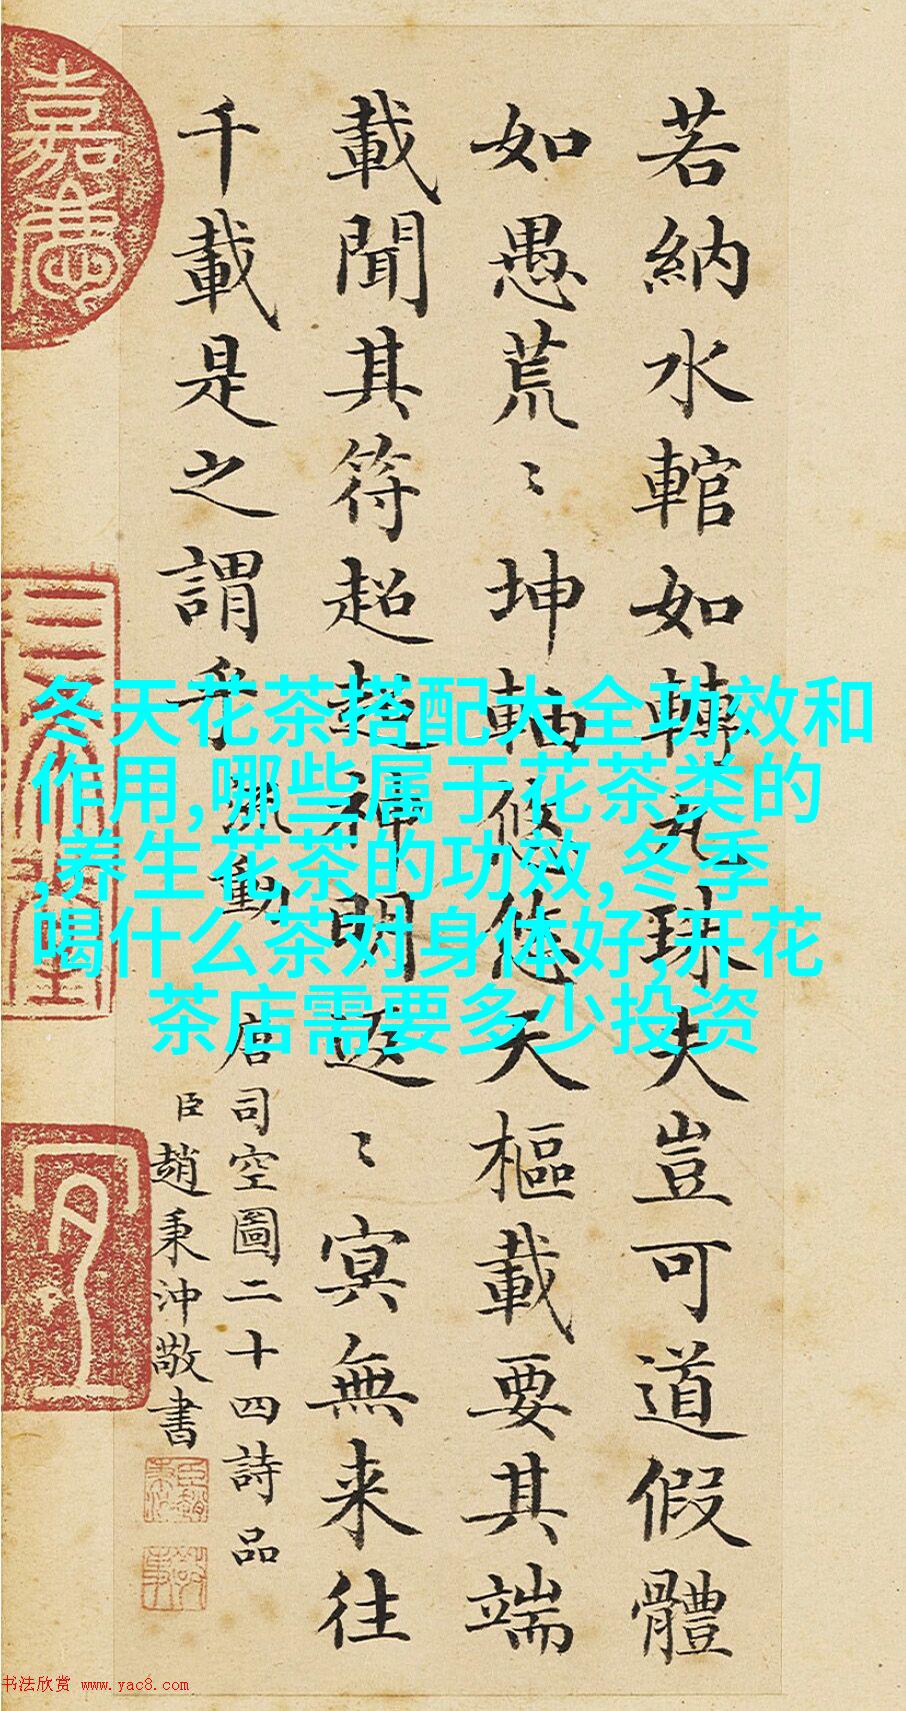 若納水輨如轉丸珠夫豈可道假體
如愚荒〻坤軸悠悠天樞載要其端
載聞其符超超神明返〻冥無来往
千載是之謂乎
流動
唐司空圖二十四詩品
臣趙秉沖敬書
嘉慶
冬天花茶搭配大全功效和
作用,哪些属于花茶类的
,养生花茶的功效,冬季
喝什么茶对身体好,开花
茶店需要多少投资
书法欣赏 www.yac8.com